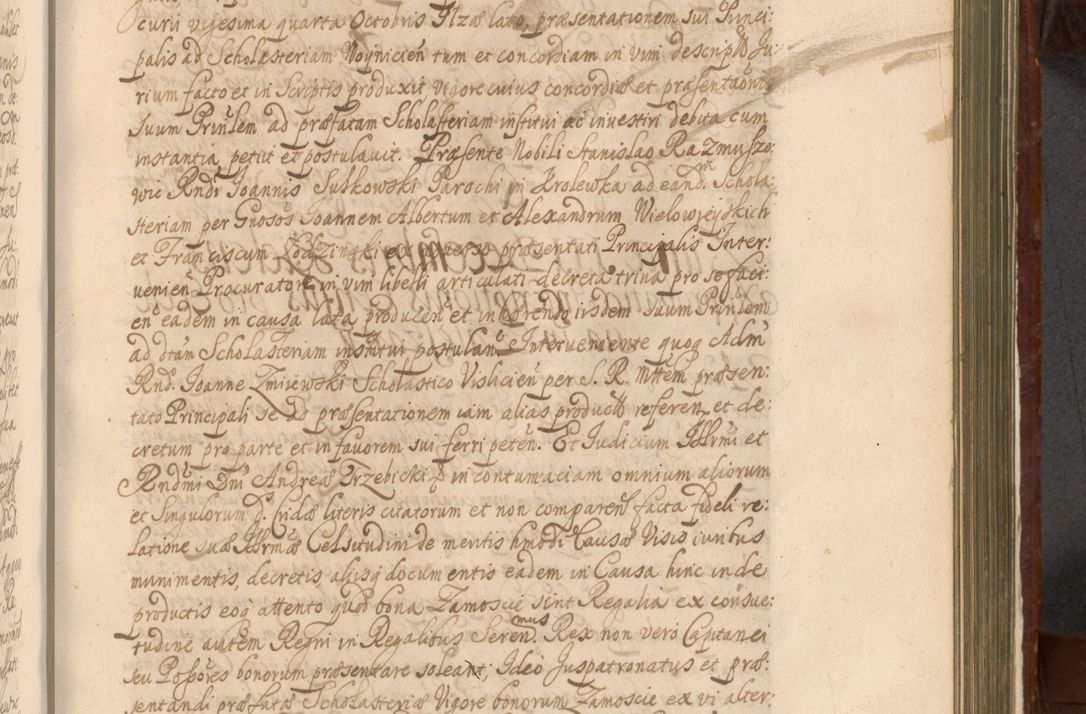 curii vigesima quarta Octobris Ilzæ lato, præsentationem sui Princi:
palis ad Scholasteriam Woynicien tum et concordiam in vim descripti Ju:
rium facto et in Scriptis produxit vigore cuius concordiæ et præsentaonis
Suum Prinlem ad præfatam Scholasteriam institui ac investiri debita cum
instantia petiit et postulavit. Præsente Nobili Stanislao Razmuszo:
wic Rndi Joannis Sulkowski Parochi in Krolewka ad eandm Schola:
steriam per Gnosos Joannem Albertum et Alexandrum Wielowieyskich
et Franciscum præsentati Principalis Inter:
venien Procuratore in vim libelli articulati decreta trina pro se faci:
en eadem in causa lata producen et inhærendo iisdem Suum Prinlem
ad dtam Scholasteriam institui postulan. Interveniente quoq Adm
Rndo Joanne Zmijewski Scholastico Vislicien per S. R. Mttem præsen:
tato Principali se ad præsentationem iam alias product referen et de:
cretum pro parte et in favorem sui ferri peten. Et Judicium Illrmi et
Rndmi Dni Andreæ Trzebicki in contumaciam omnium aliorum
et Singulorum d. Cridæ literis citatorum et non comparen facta fideli re:
latione suæ Illrmæ Celsitudini de meritis hmodi Causæ Visis iuribus
munimentis, decretis aliisq documentis eadem in Causa hinc inde
productis eoq attento quod bona Zamoscie sint Regalia ex consue:
tudine autem Regni in Regalibus Serenmus Rex non vero Capitanei
seu Possores bonorum præsentare soleant, Ideo Juspatronatus et præ:
sentandi præfatæ Scholasteriæ Vigore bonorum Zamoscie ex vi alter: